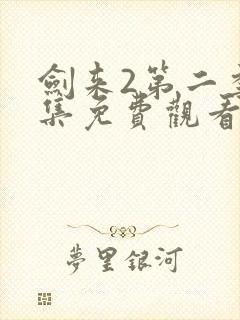 劍来2第二季
集免費觀看
夢里銀河